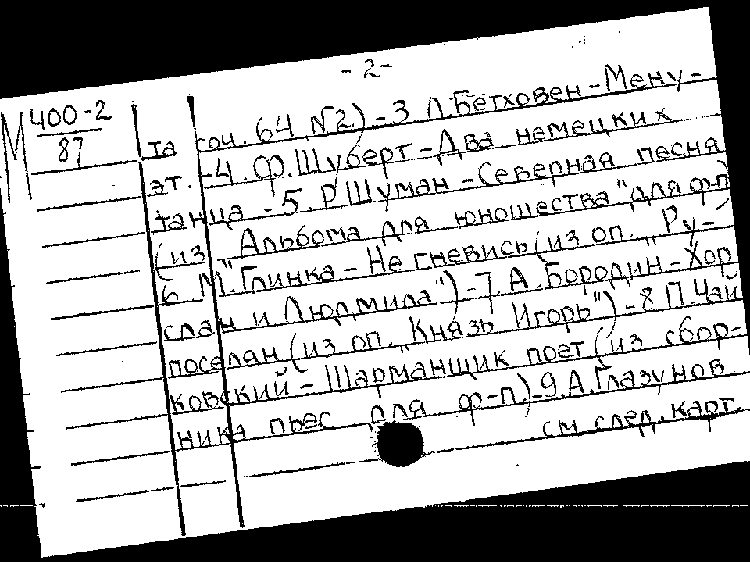 - 2 -
М 400-2
87
та соч. 64 №2) - 3 Л.Бетховен - Мену-
эт. - 4. Ф.Шуберт - Два немецких
танца - 5. Р.Шуман - Северная песня
(из "Альбома для юношества" для ф-п)
6 М.Глинка - Не гневись (из оп. "Ру-
слан и Людмила") - 7. А.Бородин - Хор
поселан (из оп. "Князь Игорь") - 8 П.Чай
ковский - Шарманщик поет (из сбор-
ника пьес для ф-п.) - 9. А.Глазунов
см след. карт.